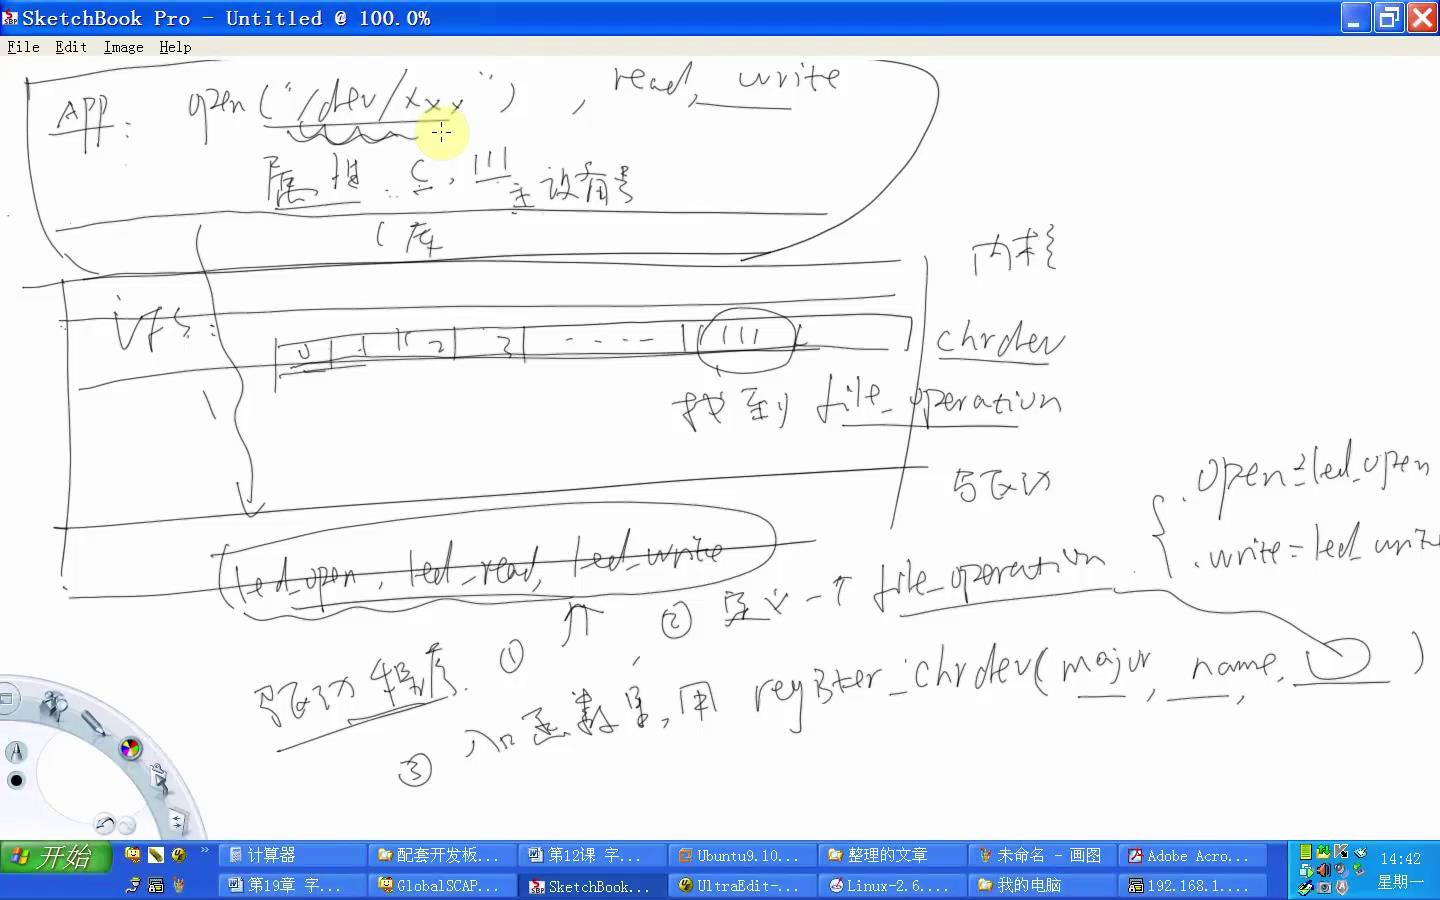 SketchBook Pro - Untitled @ 100.0%
File Edit Image Help
APP: open("/dev/xxx"), read, write
属性: c, 111 主设备号
C库
内核
VFS:
0 1 2 3 ..... 111
chrdev
找到 file_operation
驱动
.open=led_open
led_open, led_read, led_write
.write=led_write
② 定义一个 file_operation
驱动程序. ①
③ 入口函数里,用 register_chrdev(major, name, )
开始
计算器
配套开发板...
第12课 字...
Ubuntu9.10...
整理的文章
未命名 - 画图
Adobe Acro...
14:42
第19章 字...
GlobalSCAP...
SketchBook...
UltraEdit-...
Linux-2.6....
我的电脑
192.168.1....
星期一